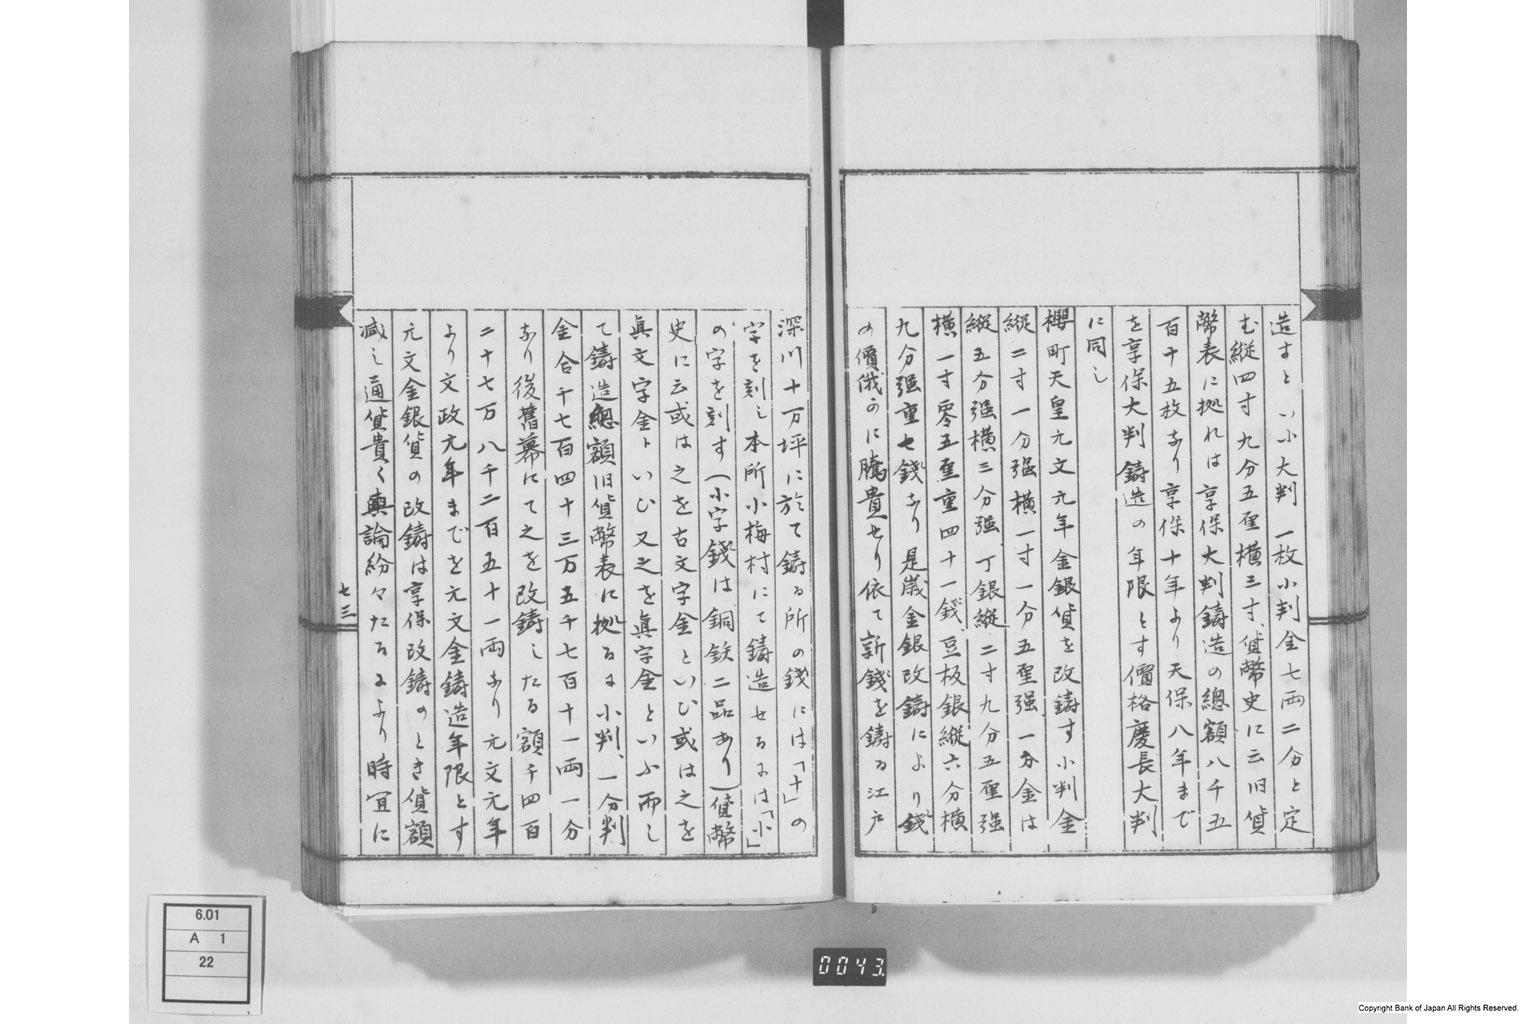 造すといふ大判一枚小判金七両二分と定
む縦四寸九分五厘横三寸、貨幣史に云旧貨
幣表に拠れは享保大判鋳造の總額八千五
百十五枚なり享保十年より天保八年まで
を享保大判鋳造の年限とす價格慶長大判
に同し
櫻町天皇元文元年金銀貨を改鋳す小判金
縦二寸一分强横一寸一分五厘强一分金は
縦五分强横三分强丁銀縦二寸九分五厘强
横一寸零五厘重四十一錢、豆板銀縦六分横
九分强重七錢なり是歳金銀改鋳により錢
の價俄かに騰貴せり依て新錢を鋳る江戸
深川十万坪に於て鋳る所の錢には「十」の
字を刻し本所小梅村にて鋳造せるには「小」
の字を刻す(小字錢は銅鉄二品あり)貨幣
史に云或は之を古文字金といひ或は之を
眞文字金トいひ又之を眞字金といふ而し
て鋳造總額旧貨幣表に拠るに小判、一分判
金合千七百四十三万五千七百十一両一分
なり後舊幕にて之を改鋳したる額千四百
二十七万八千二百五十一両なり元文元年
より文政元年までを元文金鋳造年限とす
元文金銀貨の改鋳は享保改鋳のとき貨額
減し通貨貴く輿論紛々たるにより時宜に
七三
6.01
A 1
22
0043.
Copyright Bank of Japan All Rights Reserved.